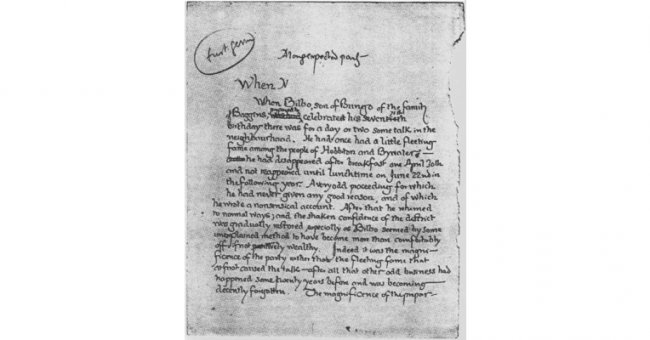 first germ
A long expected party
When
When Bilbo, son of Bungo of the family
of Baggins, celebrated his seventieth
birthday there was for a day or two some talk in the
neighbourhood. He had once had a little fleeting
fame among the people of Hobbiton and Bywater -
he had disappeared after breakfast one April 30th
and not reappeared until lunchtime on June 22nd in
the following year. A very odd proceeding for which
he had never given any good reason, and of which
he wrote a nonsensical account. After that he returned
to normal ways; and the shaken confidence of the district
was gradually restored, especially as Bilbo seemed by some
unexplained method to have become more than comfortably
off, if not positively wealthy. Indeed it was the magni-
ficence of the party rather than the fleeting fame that
at first caused the talk - after all that other odd business had
happened some twenty years before and was becoming
decently forgotten. The magnificence of the prepar-